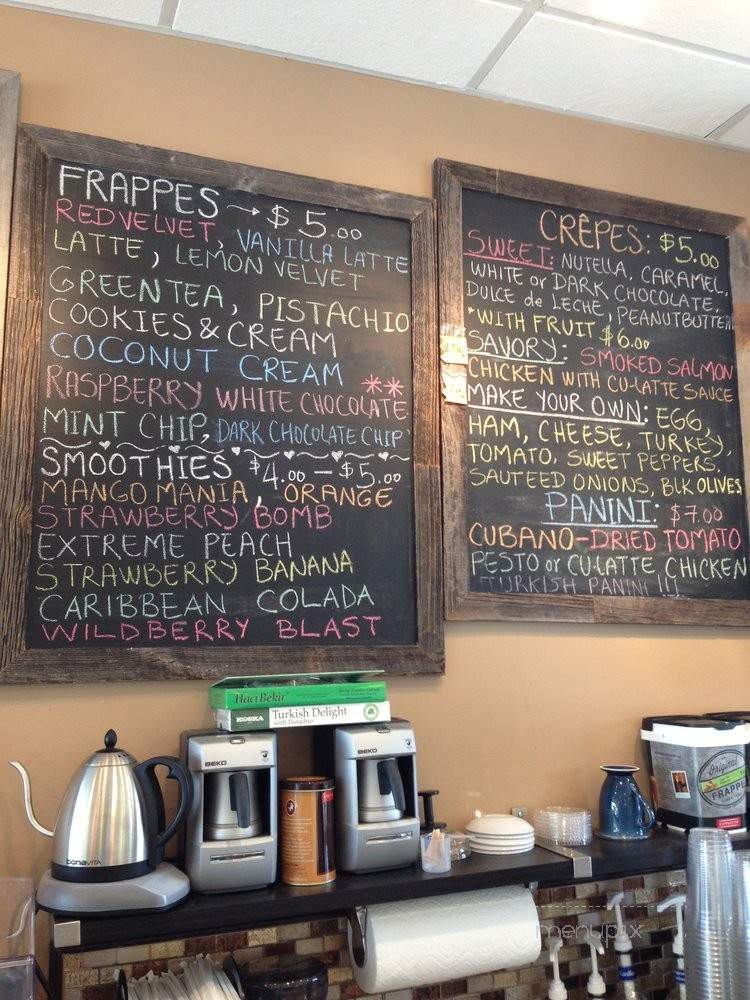 FRAPPES → $5.00
RED VELVET, VANILLA LATTE
LATTE, LEMON VELVET
GREEN TEA, PISTACHIO
COOKIES & CREAM
COCONUT CREAM
RASPBERRY WHITE CHOCOLATE **
MINT CHIP, DARK CHOCOLATE CHIP
SMOOTHIES $4.00 - $5.00
MANGO MANIA, ORANGE
STRAWBERRY BOMB
EXTREME PEACH
STRAWBERRY BANANA
CARIBBEAN COLADA
WILDBERRY BLAST
CRÊPES: $5.00
SWEET: NUTELLA, CARAMEL,
WHITE or DARK CHOCOLATE,
DULCE de LECHE, PEANUTBUTTER
*WITH FRUIT $6.00
SAVORY: SMOKED SALMON
CHICKEN WITH CU-LATTE SAUCE
MAKE YOUR OWN: EGG,
HAM, CHEESE, TURKEY,
TOMATO, SWEET PEPPERS,
SAUTEED ONIONS, BLK OLIVES
PANINI: $7.00
CUBANO-DRIED TOMATO
PESTO or CU-LATTE CHICKEN
TURKISH PANINI !!!
Hacı Bekir
KOSKA Turkish Delight
with Pistachio
BEKO
BEKO
bonaVITA
Original
FRAPPE
menupix